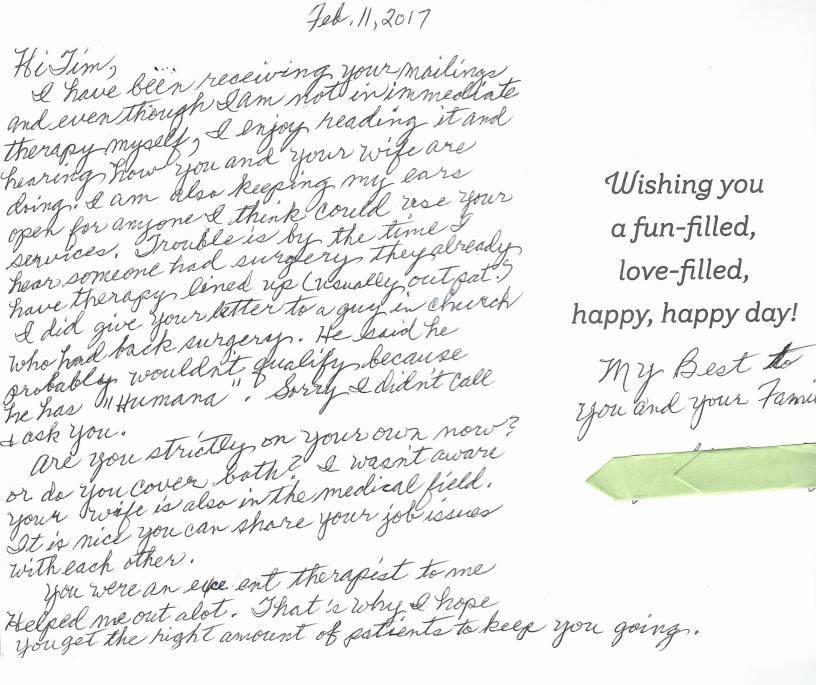 Feb. 11, 2017
Hi Tim,
I have been receiving your mailings
and even though I am not in immediate
therapy myself, I enjoy reading it and
hearing how you and your wife are
doing. I am also keeping my ears
open for anyone I think could use your
services. Trouble is by the time I
hear someone had surgery they already
have therapy lined up (usually out pat.)
I did give your letter to a guy in church
who had back surgery. He said he
probably wouldn't qualify because
he has "Humana". Sorry I didn't call
& ask you.
Are you strictly on your own now?
or do you cover both? I wasn't aware
your wife is also in the medical field.
It is nice you can share your job issues
with each other.
You were an ent therapist to me
Helped me out alot. That's why I hope
you get the right amount of patients to keep you going.
Wishing you
a fun-filled,
love-filled,
happy, happy day!
My Best to
you and your Fami